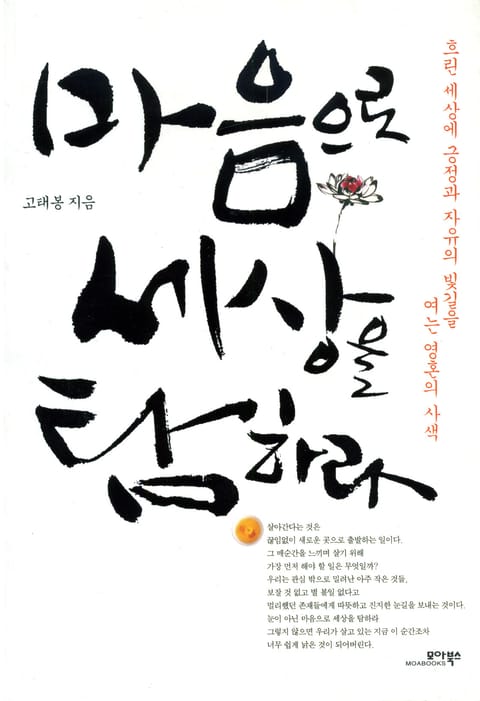 마음으로
세상을
탐하라
고태봉 지음
흐린 세상에 긍정과 자유의 빛길을
여는 영혼의 사색
살아간다는 것은
끊임없이 새로운 곳으로 출발하는 일이다.
그 매순간을 느끼며 살기 위해
가장 먼저 해야 할 일은 무엇일까?
우리는 관심 밖으로 밀려난 아주 작은 것들,
보잘 것 없고 별 볼일 없다고
멀리했던 존재들에게 따뜻하고 진지한 눈길을 보내는 것이다.
눈이 아닌 마음으로 세상을 탐하라
그렇지 않으면 우리가 살고 있는 지금 이 순간조차
너무 쉽게 낡은 것이 되어버린다.
모아북스
MOABOOKS